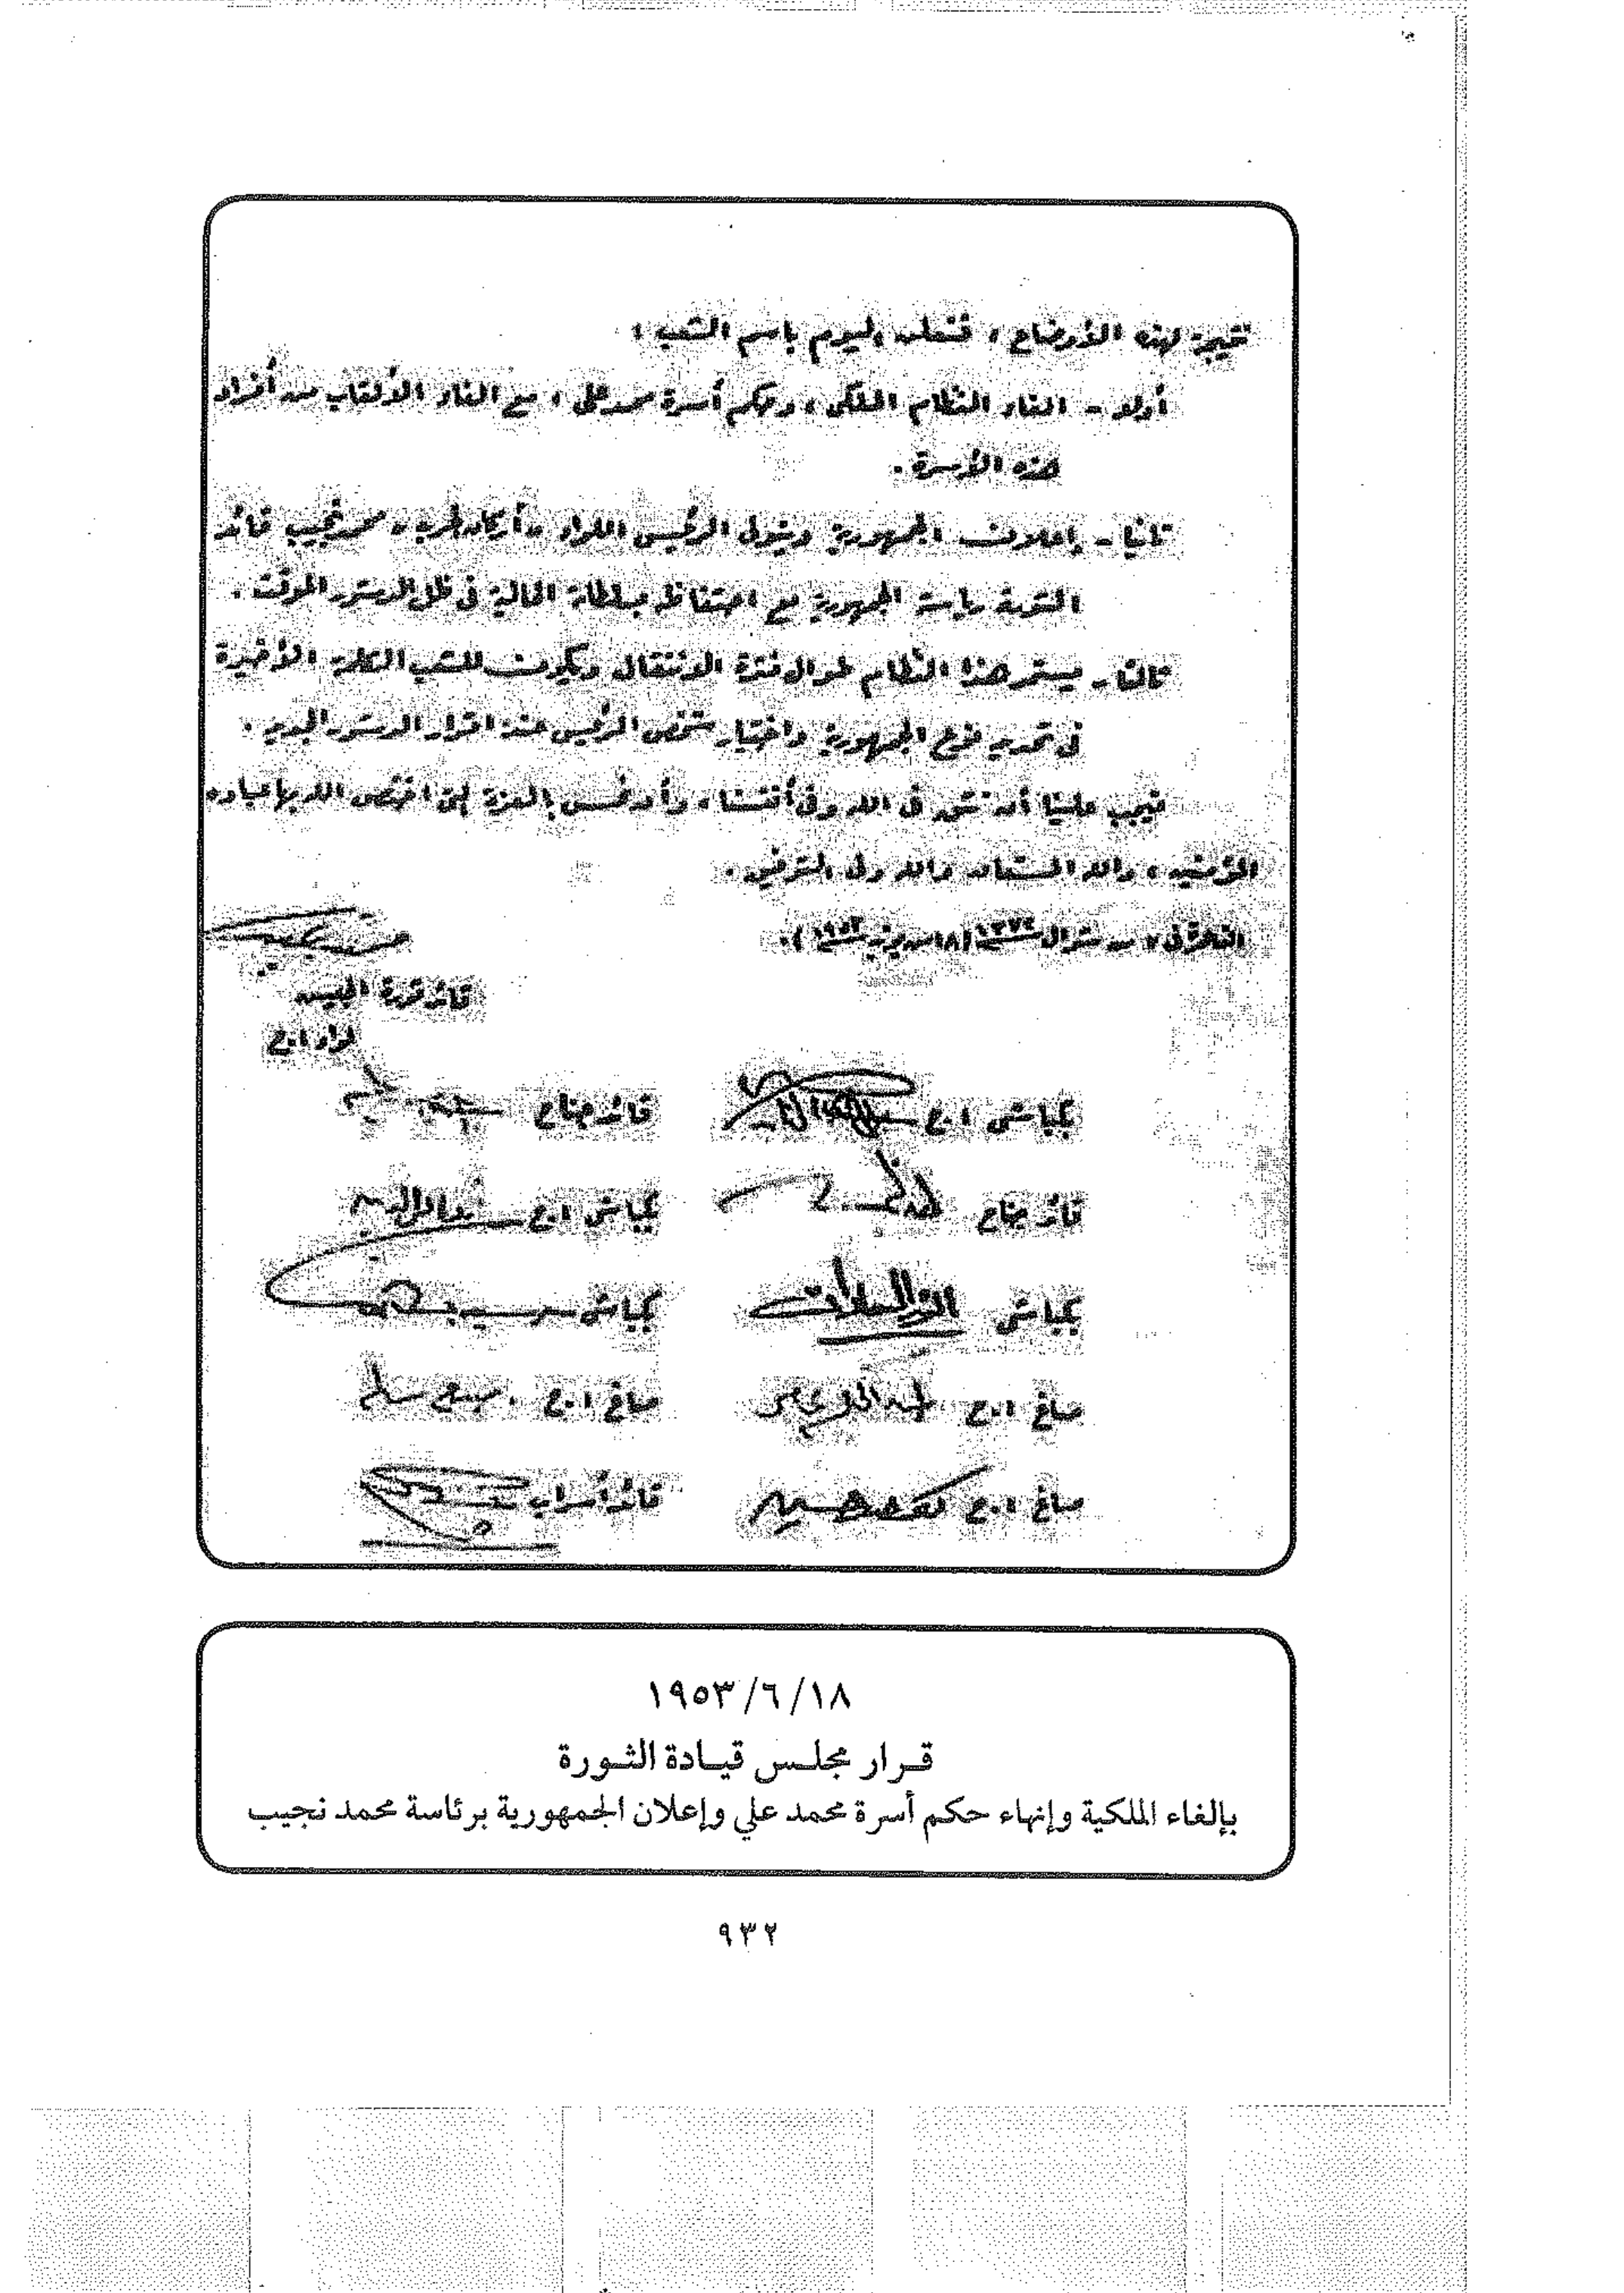 نتيجة لهذه الأوضاع ، فنعلن اليوم باسم الشعب :
أولا - الغاء النظام الملكى ، وحكم أسرة محمد على ، مع الغاء الألقاب من أفراد
هذه الأسرة .
ثانيا - إعلان الجمهورية ويتولى الرئيس اللواء ، أركان الحرب ، محمد نجيب قائد
الثورة رياسة الجمهورية مع احتفاظه بسلطاته الحالية فى ظل الدستور الموقت .
ثالثا - يستمر هذا النظام طوال فترة الانتقال ويكون للشعب الكلمة الأخيرة
فى تحديد نوع الجمهورية واختيار شخص الرئيس عند اقرار الدستور الجديد .
فيجب علينا أن نثق فى الله وفى أنفسنا ، وأن نحس بالعزة التى اختص الله بها عباده
المؤمنين ، والله المستعان والله ولى التوفيق .
القاهرة فى ٧ من شوال ١٣٧٢ ( ١٨ من يونيه ١٩٥٣ ) .
قائد ثورة الجيش
لواء ا.ح
بكباشى ا.ح قائد جناح
قائد جناح بكباشى ا.ح
بكباشى أنور السادات بكباشى
صاغ ا.ح صاغ ا.ح صلاح سالم
صاغ ا.ح حسين قائد أسراب
١٩٥٣/٦/١٨
قرار مجلس قيادة الثورة
بإلغاء الملكية وإنهاء حكم أسرة محمد علي وإعلان الجمهورية برئاسة محمد نجيب
٩٣٢